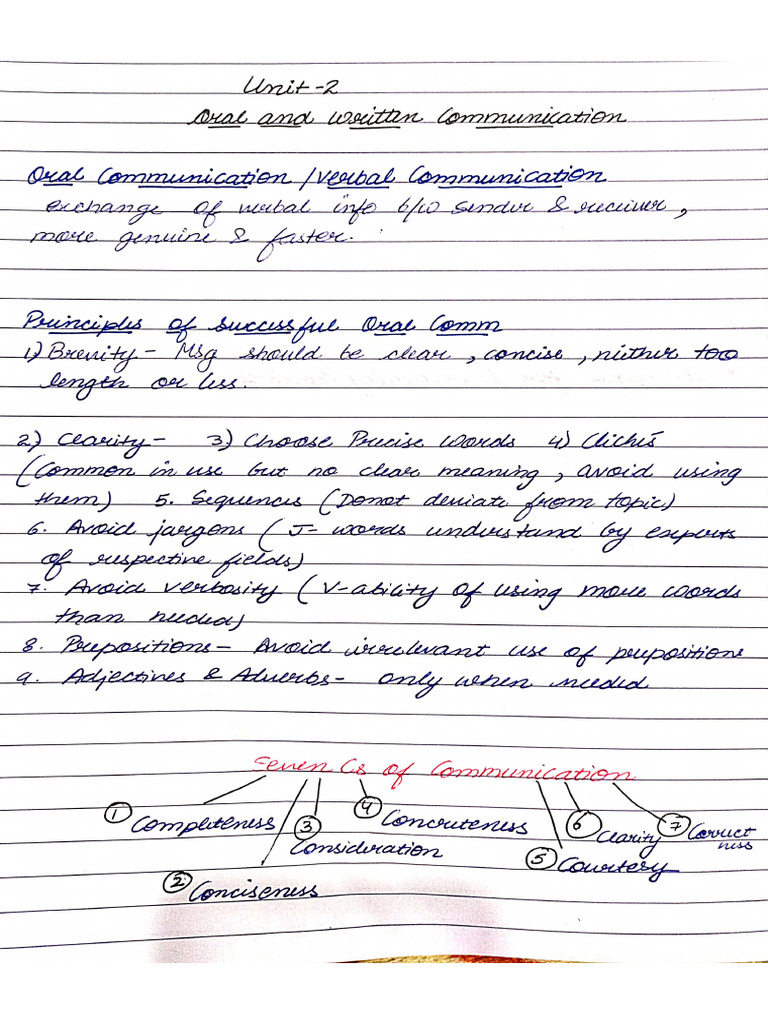 Unit-2
Oral and Written Communication
Oral Communication / Verbal Communication
exchange of verbal info b/w Sender & receiver,
more genuine & faster.
Principles of Successful Oral Comm
1) Brevity - Msg should be clear, concise, neither too
length or less.
2) Clarity - 3) Choose Precise Words 4) Clichés
(Common in use but no clear meaning, avoid using
them) 5. Sequences (Donot deviate from topic)
6. Avoid jargons (J- words understand by experts
of respective fields)
7. Avoid verbosity (V-ability of using more words
than needed)
8. Prepositions - Avoid irrelevant use of prepositions
9. Adjectives & Adverbs - only when needed
Seven Cs of Communication
1 Completeness
2 Conciseness
3 Consideration
4 Concreteness
5 Courtesy
6 Clarity
7 Correct
ness